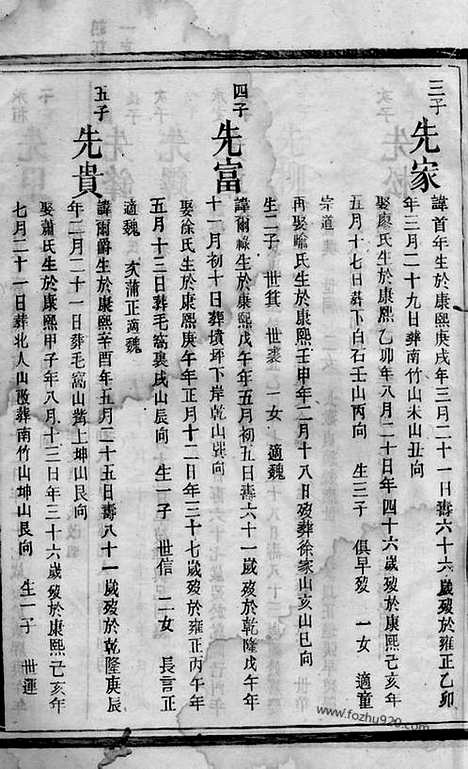 三子 先家
諱首年生於康熙庚戌年三月二十一日壽六十六歲歿於雍正乙卯
年三月二十九日葬南竹山未山丑向
娶廖氏生於康熙乙卯年八月二十日年四十六歲歿於康熙己亥年
五月十七日葬下白石壬山丙向 生三子 俱早歿 一女 適童
宗道
再娶喻氏生於康熙壬申年二月十八日歿葬徐家山亥山巳向
生二子 世箕 世裘 一女 適魏
四子 先富
諱爾祿生於康熙戊午年五月初五日壽六十一歲歿於乾隆戊午年
十一月初十日葬墳坪下岸乾山巽向
娶徐氏生於康熙庚午年正月十二日年三十七歲歿於雍正丙午年
五月十三日葬毛窩裏戌山辰向 生一子 世信 二女 長言正
適魏 次蒲正適魏
五子 先貴
諱爾爵生於康熙辛酉年五月二十五日壽八十一歲歿於乾隆庚辰
年二月二十一日葬毛窩山嘴上坤山艮向
娶蕭氏生於康熙甲子年八月十三日年三十六歲歿於康熙己亥年
七月二十一日葬北人山改葬南竹山坤山艮向 生一子 世運
www.fozhu920.com